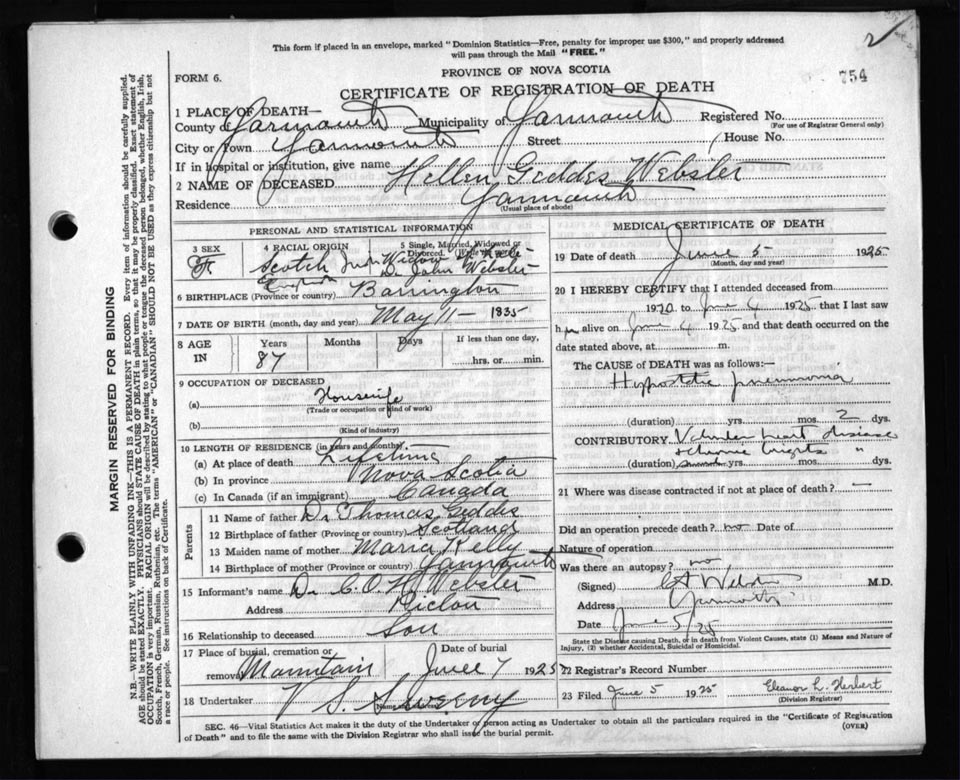 2
This form if placed in an envelope, marked "Dominion Statistics—Free, penalty for improper use $300," and properly addressed
will pass through the Mail "FREE."
PROVINCE OF NOVA SCOTIA
FORM 6.
754
CERTIFICATE OF REGISTRATION OF DEATH
1 PLACE OF DEATH—
County of Yarmouth Municipality of Yarmouth Registered No.
(For use of Registrar General only)
City or Town Yarmouth Street House No.
If in hospital or institution, give name
2 NAME OF DECEASED Hellen Geddes Webster
Residence Yarmouth
(Usual place of abode)
PERSONAL AND STATISTICAL INFORMATION
3 SEX
F
4 RACIAL ORIGIN
Scotch
English
5 Single, Married, Widowed or
Divorced.
Widow
Dr John Webster
6 BIRTHPLACE (Province or country) Barrington
7 DATE OF BIRTH (month, day and year) May 11 - 1835
8 AGE
IN
Years
87
Months
Days
If less than one day,
hrs. or min.
9 OCCUPATION OF DECEASED
(a) Housewife
(Trade or occupation or kind of work)
(b)
(Kind of industry)
10 LENGTH OF RESIDENCE (in years and months)
(a) At place of death Lifetime
(b) In province Nova Scotia
(c) In Canada (if an immigrant) Canada
Parents
11 Name of father Dr Thomas Geddes
12 Birthplace of father (Province or country) Scotland
13 Maiden name of mother Maria Kelly
14 Birthplace of mother (Province or country) Yarmouth
15 Informant's name Dr C.O.H. Webster
Address Pictou
16 Relationship to deceased Son
17 Place of burial, cremation or
removal Mountain
Date of burial
June 7 1925
18 Undertaker V. S. Sweeny
MEDICAL CERTIFICATE OF DEATH
19 Date of death June 5 1925
(Month, day and year)
20 I HEREBY CERTIFY that I attended deceased from
1920 to June 4 1925 that I last saw
her alive on June 4 1925 and that death occurred on the
date stated above, at m.
The CAUSE OF DEATH was as follows:—
Hypostatic pneumonia
(duration) yrs. mos. 2 dys.
CONTRIBUTORY. Valvular heart disease
(duration) yrs. mos. dys.
21 Where was disease contracted if not at place of death? —
Did an operation precede death? no Date of
Nature of operation
Was there an autopsy? no
(Signed) M.D.
Address Yarmouth
Date June 5/25
State the Disease causing Death, or in death from Violent Causes, state (1) Means and Nature of
Injury, (2) whether Accidental, Suicidal or Homicidal.
22 Registrar's Record Number
23 Filed June 5 1925 Eleanor L. Herbert
(Division Registrar)
SEC. 46—Vital Statistics Act makes it the duty of the Undertaker or person acting as Undertaker to obtain all the particulars required in the "Certificate of Registration
of Death" and to file the same with the Division Registrar who shall issue the burial permit.
(OVER)
MARGIN RESERVED FOR BINDING
N.B.—WRITE PLAINLY WITH UNFADING INK—THIS IS A PERMANENT RECORD. Every item of information should be carefully supplied.
AGE should be stated EXACTLY. PHYSICIANS should STATE CAUSE OF DEATH in plain terms, so that it may be properly classified. Exact statement of
OCCUPATION is very important. RACIAL ORIGIN will be described by stating to what people or tongue the deceased person belonged, whether English, Irish,
Scotch, French, German, Russian, Ruthenian, etc. The terms "AMERICAN" or "CANADIAN" SHOULD NOT BE USED as they express citizenship but not
a race or people. See instructions on back of Certificate.